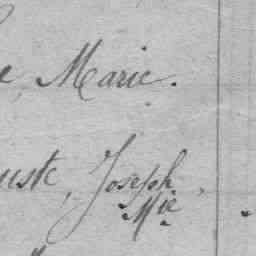 e, Marie.
uste, Joseph,
Mie